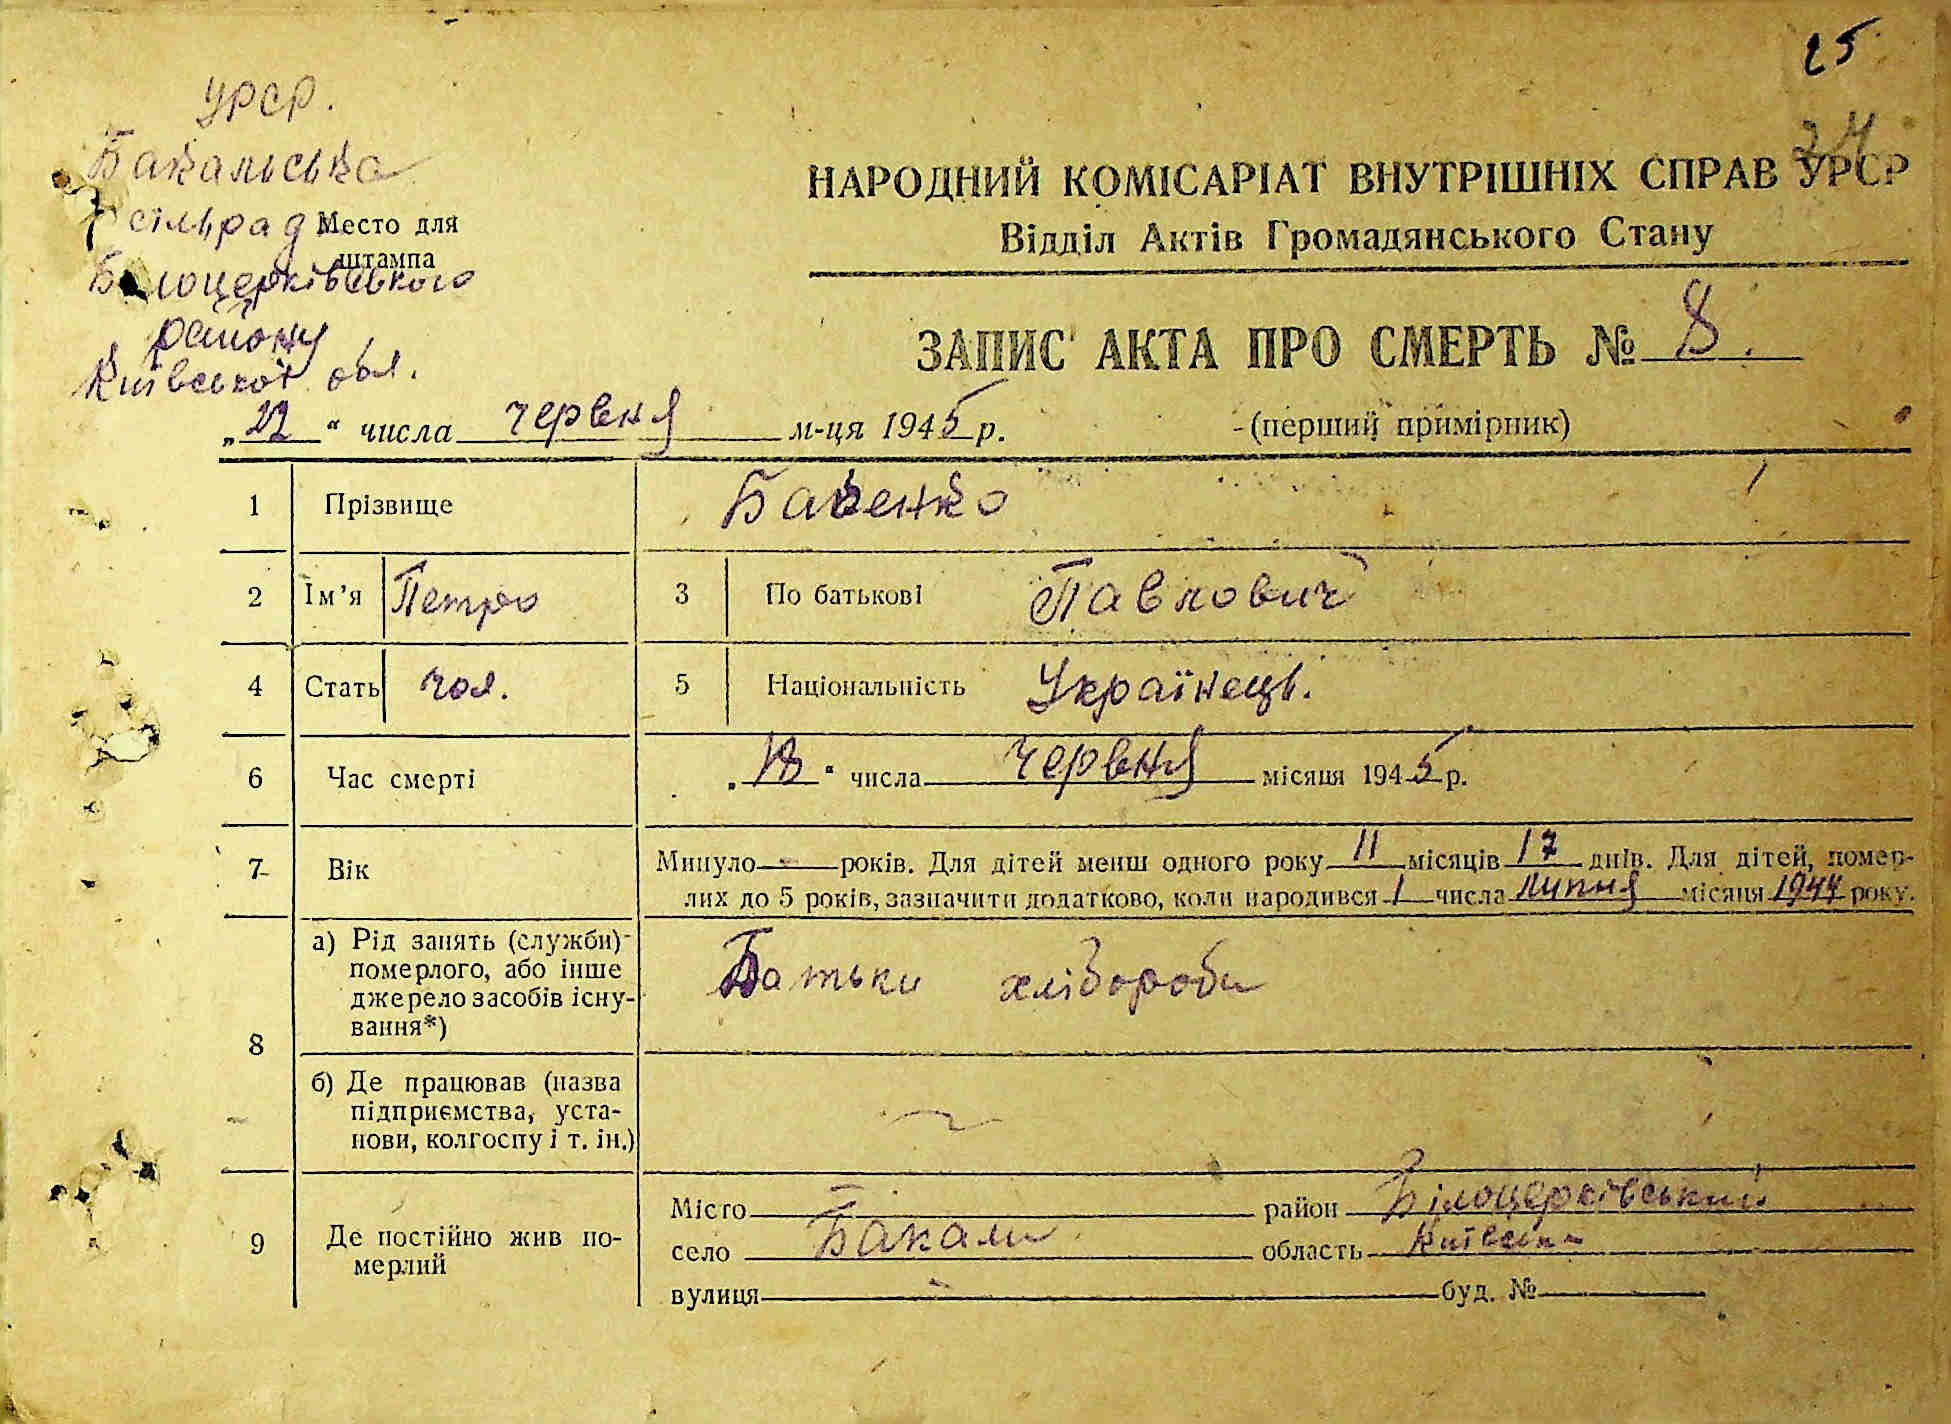 25
24
УРСР.
Бакальська
сільрад
Место для
штампа
Білоцерківського
району
Київської обл.
НАРОДНИЙ КОМІСАРІАТ ВНУТРІШНІХ СПРАВ УРСР
Відділ Актів Громадянського Стану
ЗАПИС АКТА ПРО СМЕРТЬ № 8.
„22“ числа червня м-ця 1945 р.
(перший примірник)
1 Прізвище Бабенко
2 Ім’я Петро 3 По батькові Павлович
4 Стать чол. 5 Національність Українець.
6 Час смерті „18“ числа червня місяця 1945 р.
7 Вік Минуло - років. Для дітей менш одного року 11 місяців 17 днів. Для дітей, помер-
лих до 5 років, зазначити додатково, коли народився 1 числа Липня місяця 1944 року.
8
а) Рід занять (служби)
померлого, або інше
джерело засобів існу-
вання*)
Батьки хлібороби
б) Де працював (назва
підприємства, уста-
нови, колгоспу і т. ін.)
9 Де постійно жив по-
мерлий
Місто район Білоцерківський
село Бакали область Київська
вулиця - буд. №